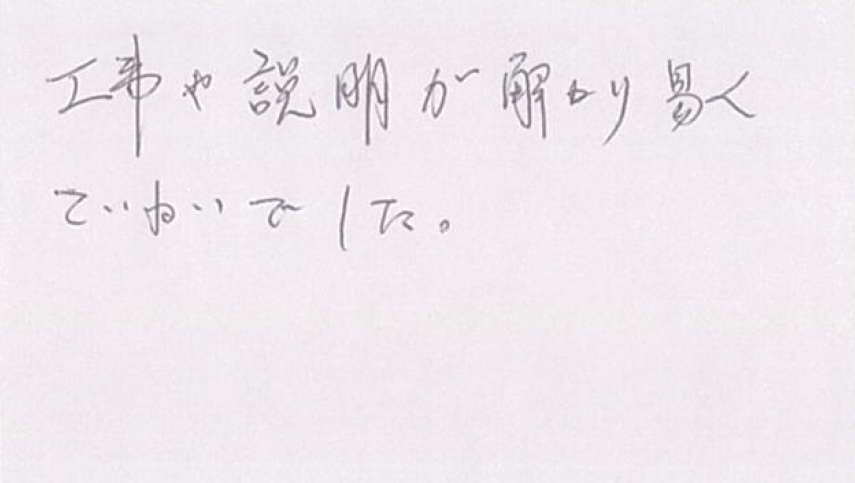 工事や説明が解かり易く
ていねいでした。